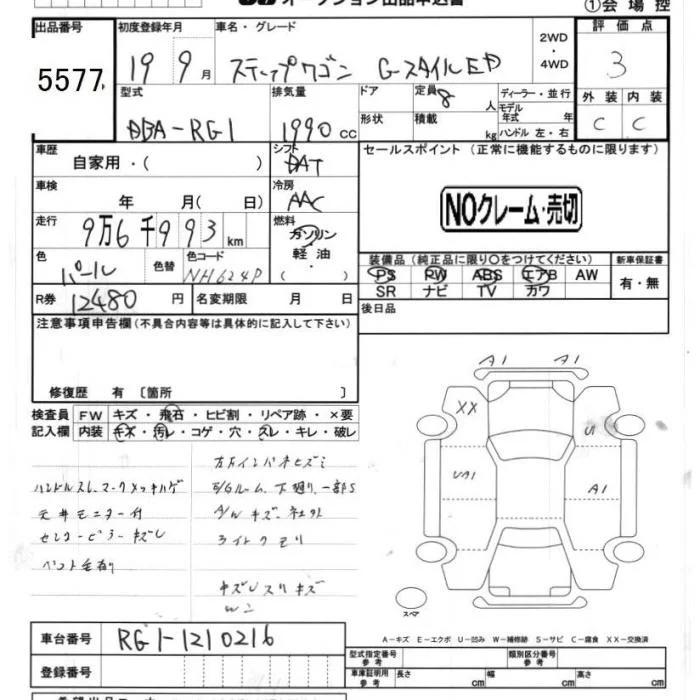 オークション出品申込書
①会場控
出品番号 初度登録年月 車名・グレード 2WD・4WD 評価点
5577 19 9月 ステップワゴン GスタイルED 3
型式 排気量 ドア 定員 8人 ディーラー・並行 外装 内装
DBA-RG1 1990 cc 形状 積載 kg モデル年式 年 ハンドル 左・右 C C
車歴 自家用・( ) シフト DAT セールスポイント(正常に機能するものに限ります)
車検 年 月( 日) 冷房 AAC NOクレーム・売切
走行 9万6千993 km 燃料 ガソリン 軽油
色 パール 色替 色コード NH624P 装備品(純正品に限り○をつけてください) 新車保証書
PS PW ABS エアB AW 有・無
SR ナビ TV カワ
R券 12480 円 名変期限 月 日 後日品
注意事項申告欄(不具合内容等は具体的に記入して下さい)
修復歴 有〔箇所 〕
検査員 FW キズ・飛石・ヒビ割・リペア跡・×要
記入欄 内装 キズ・汚レ・コゲ・穴・スレ・キレ・破レ
ハンドルスレ、マークメッキハゲ
天井モニター付
センターピラーキズU
下廻り、一部S
A/Wキズ 社外
ライトクモリ
キズUスリキズ
A1 A1
XX
U1
UA1
A1
スペア
A-キズ E-エクボ U-凹み W-補修跡 S-サビ C-腐食 XX-交換済
車台番号 RG1-1210216
型式指定番号 参考 類別区分番号 参考
登録番号 車庫証明用 参考 長さ cm 幅 cm 高さ cm